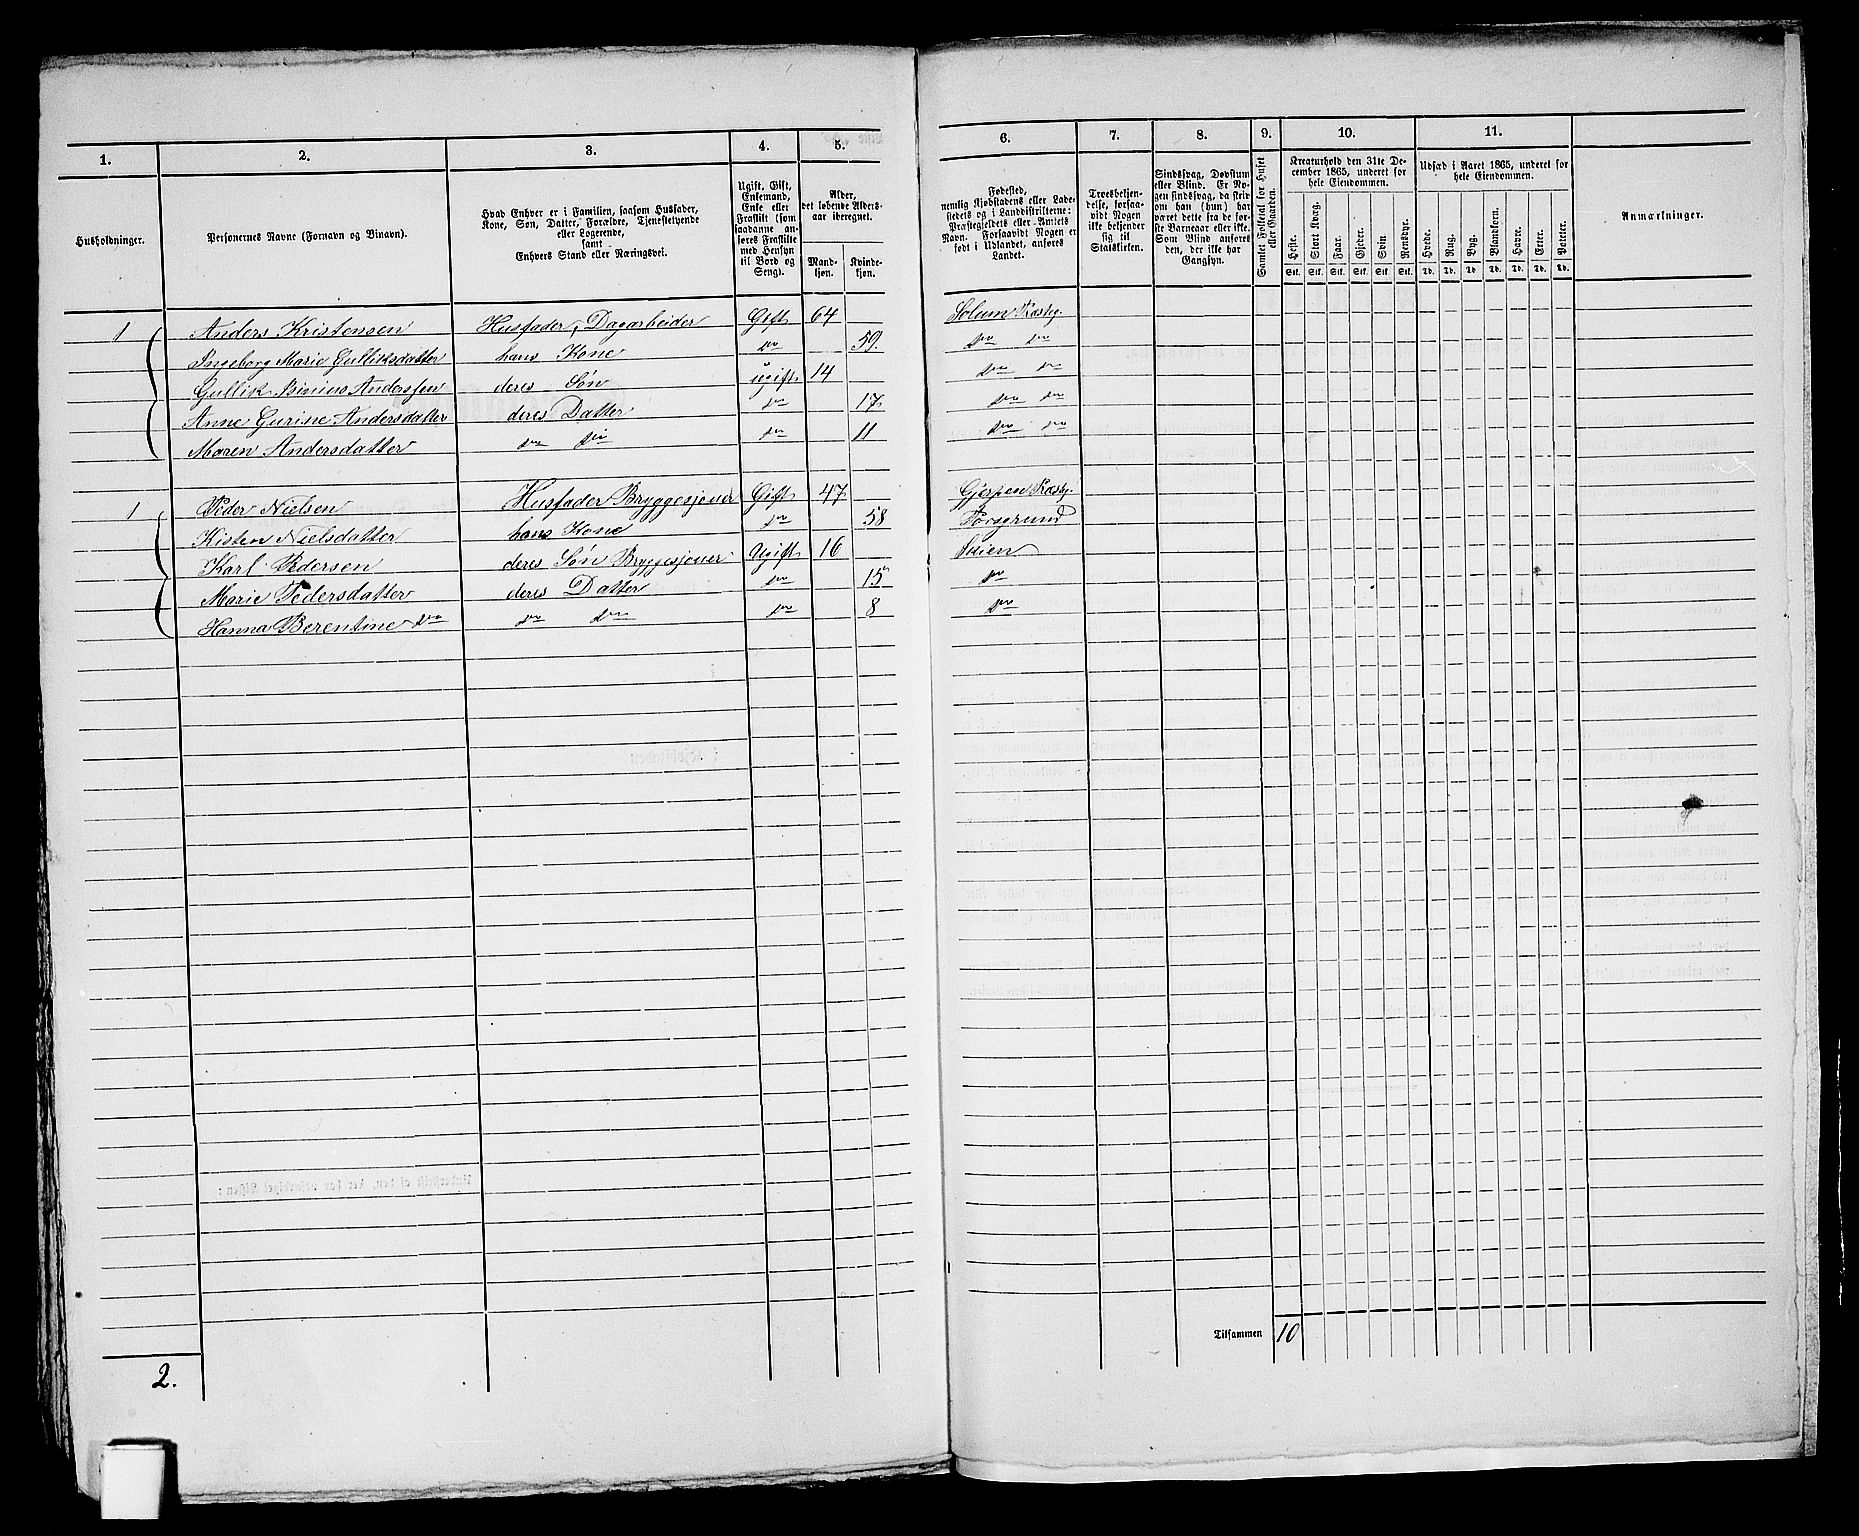 1. 2. 3. 4. 5. 6. 7. 8. 9. 10. 11.
Husholdninger.
Personernes Navne (Fornavn og Binavn).
Hvad Enhver er i Familien, saasom Husfader,
Kone, Søn, Datter, Forældre, Tjenestetyende
eller Logerende,
samt
Enhvers Stand eller Næringsvei.
Ugift, Gift,
Enkemand,
Enke eller
Fraskilt (som
saadanne an-
føres Fraskilte
med Hensyn
til Bord og
Seng).
Alder,
det løbende Alders-
aar iberegnet.
Mand-
kjøn.
Kvinde-
kjøn.
Fødested,
nemlig Kjøbstadens eller Lade-
stedets og i Landdistrikterne:
Præstegjeldets eller Amtets
Navn. Forsaavidt Nogen er
født i Udlandet, anføres
Landet.
Troesbekjen-
delse, forsaa-
vidt Nogen
ikke bekjender
sig til
Statskirken.
Sindssvag, Døvstum
eller Blind. Er No-
gen sindssvag, da skriv
om han (hun) har
været dette fra de før-
ste Barneaar eller ikke.
Som Blind anføres
den, der ikke har
Gangsyn.
Samlet Folketal for Huset
eller Gaarden.
Kreaturhold den 31te De-
cember 1865, underet for
hele Eiendommen.
Heste. Stort Kvæg. Faar. Gjeder. Svin. Rensdyr.
Stk. Stk. Stk. Stk. Stk. Stk.
Udsæd i Aaret 1865, underet for
hele Eiendommen.
Hvede. Rug. Byg. Blandkorn. Havre. Erter. Poteter.
Td. Td. Td. Td. Td. Td. Td.
Anmærkninger.
1 Anders Kristensen Husfader, Dagarbeider Gift 64 Solum Præstg.
Ingeborg Marie Gulliksdatter hans Kone do 59. do do
Gullik Andersen deres Søn ugift 14 do do
Anne Gurine Andersdatter deres Datter do 17 do do
Maren Andersdatter do do do 11 do do
1 Peder Nielsen Husfader Bryggesjouer Gift 47 Gjerpen Præstg.
Kisten Nielsdatter hans Kone do 58 Porsgrund
Karl Pedersen deres Søn Bryggesjouer Ugift 16 Skien
Marie Pedersdatter deres Datter do 15 do
Hanna Berentine do do do do 8 do
Tilsammen 10
2.